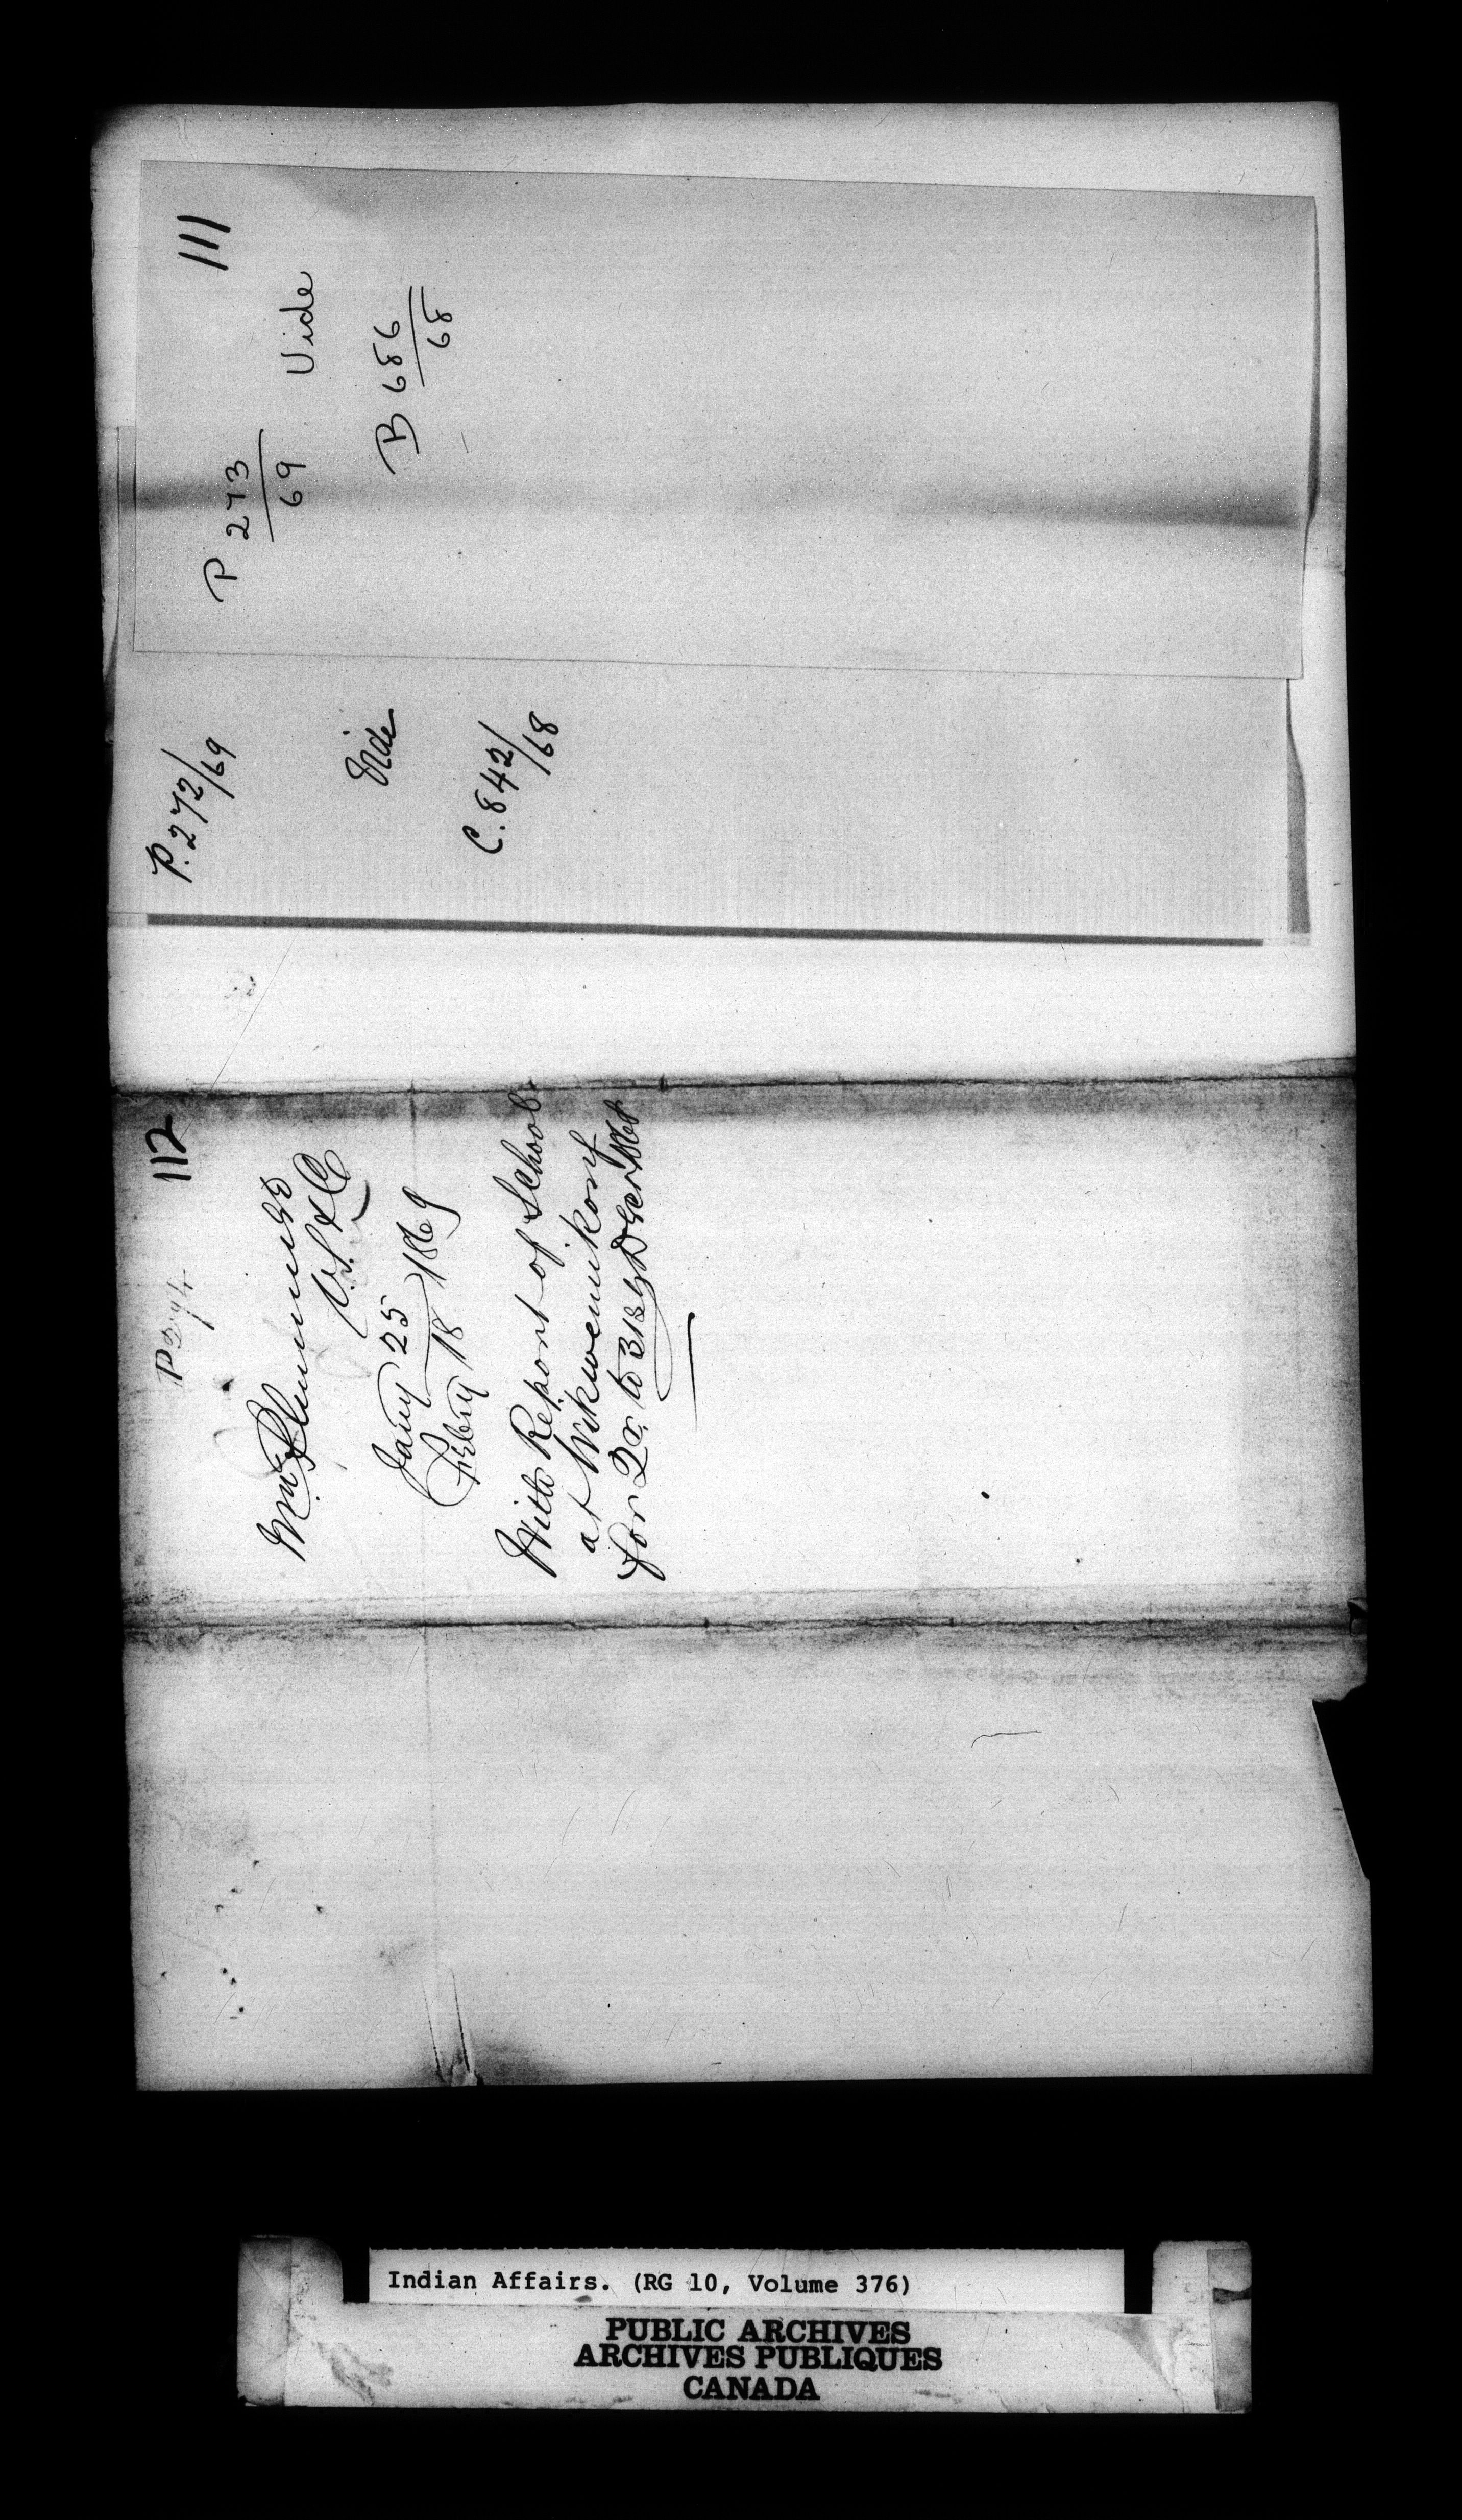 111
P 273
69
Vide
B 686
68
P. 272/69
Vide
C. 842/68
112
P 274
Wm Plummer Esq
V.S. & C
Jany 25
Febry 18 1869
With Report of School
at Wikwemikong
for Qr. to 31st Decr 1868
Indian Affairs. (RG 10, Volume 376)
PUBLIC ARCHIVES
ARCHIVES PUBLIQUES
CANADA